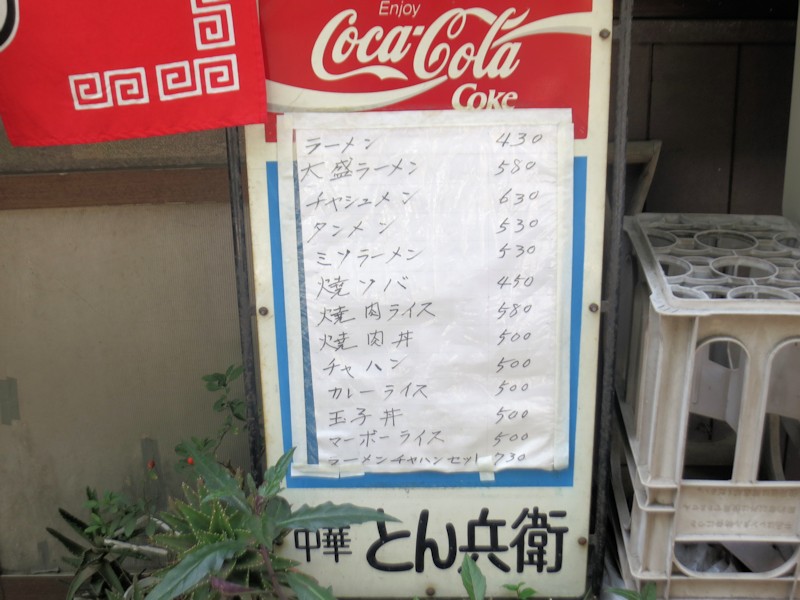 Enjoy
Coca-Cola
Coke
ラーメン 430
大盛ラーメン 580
チャシュメン 630
タンメン 530
ミソラーメン 530
焼ソバ 450
焼肉ライス 580
焼肉丼 500
チャハン 500
カレーライス 500
玉子丼 500
マーボーライス 500
ラーメンチャハンセット 730
中華 とん兵衛